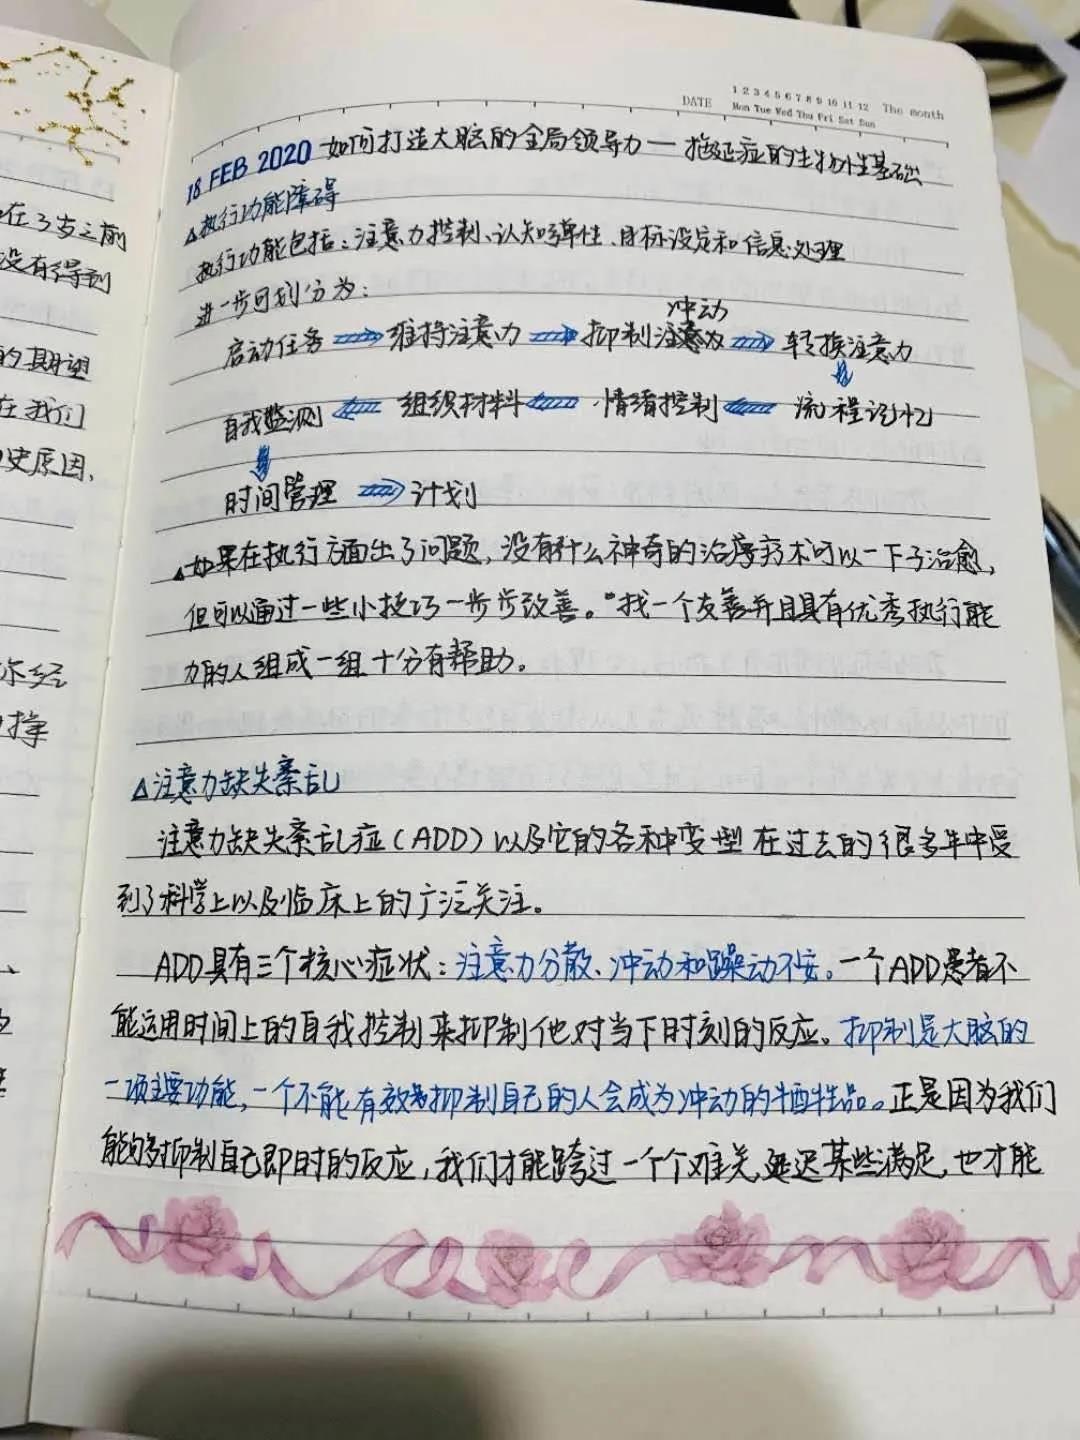 DATE
1 2 3 4 5 6 7 8 9 10 11 12 The month
Mon Tue Wed Thu Fri Sat Sun
18 FEB 2020 如何打造大脑的全局领导力一拖延症的生物性基础
△执行功能障碍
执行功能包括:注意力控制、认知弹性、目标设定和信息处理
进一步可划分为:
冲动
启动任务 ⇒ 维持注意力 ⇒ 抑制 ⇒ 转换注意力
自我监测 ⇐ 组织材料 ⇐ 情绪控制 ⇐ 流程记忆
时间管理 ⇒ 计划
△如果在执行方面出了问题,没有什么神奇的治疗术可以一下子治愈,
但可以通过一些小技巧一步步改善。找一个友善并且具有优秀执行能
力的人组成一组十分有帮助。
△注意力缺失紊乱
注意力缺失紊乱症(ADD)以及它的各种变型在过去的很多年中受
到了科学上以及临床上的广泛关注。
ADD具有三个核心症状:注意力分散、冲动和躁动不安。一个ADD患者不
能运用时间上的自我控制来抑制他对当下时刻的反应。抑制是大脑的
一项主要功能,一个不能有效抑制自己的人会成为冲动的牺牲品。正是因为我们
能够抑制自己即时的反应,我们才能跨过一个个难关,延迟某些满足,也才能
在3岁之前
没有得到
的期望
在我们
史原因,
你经